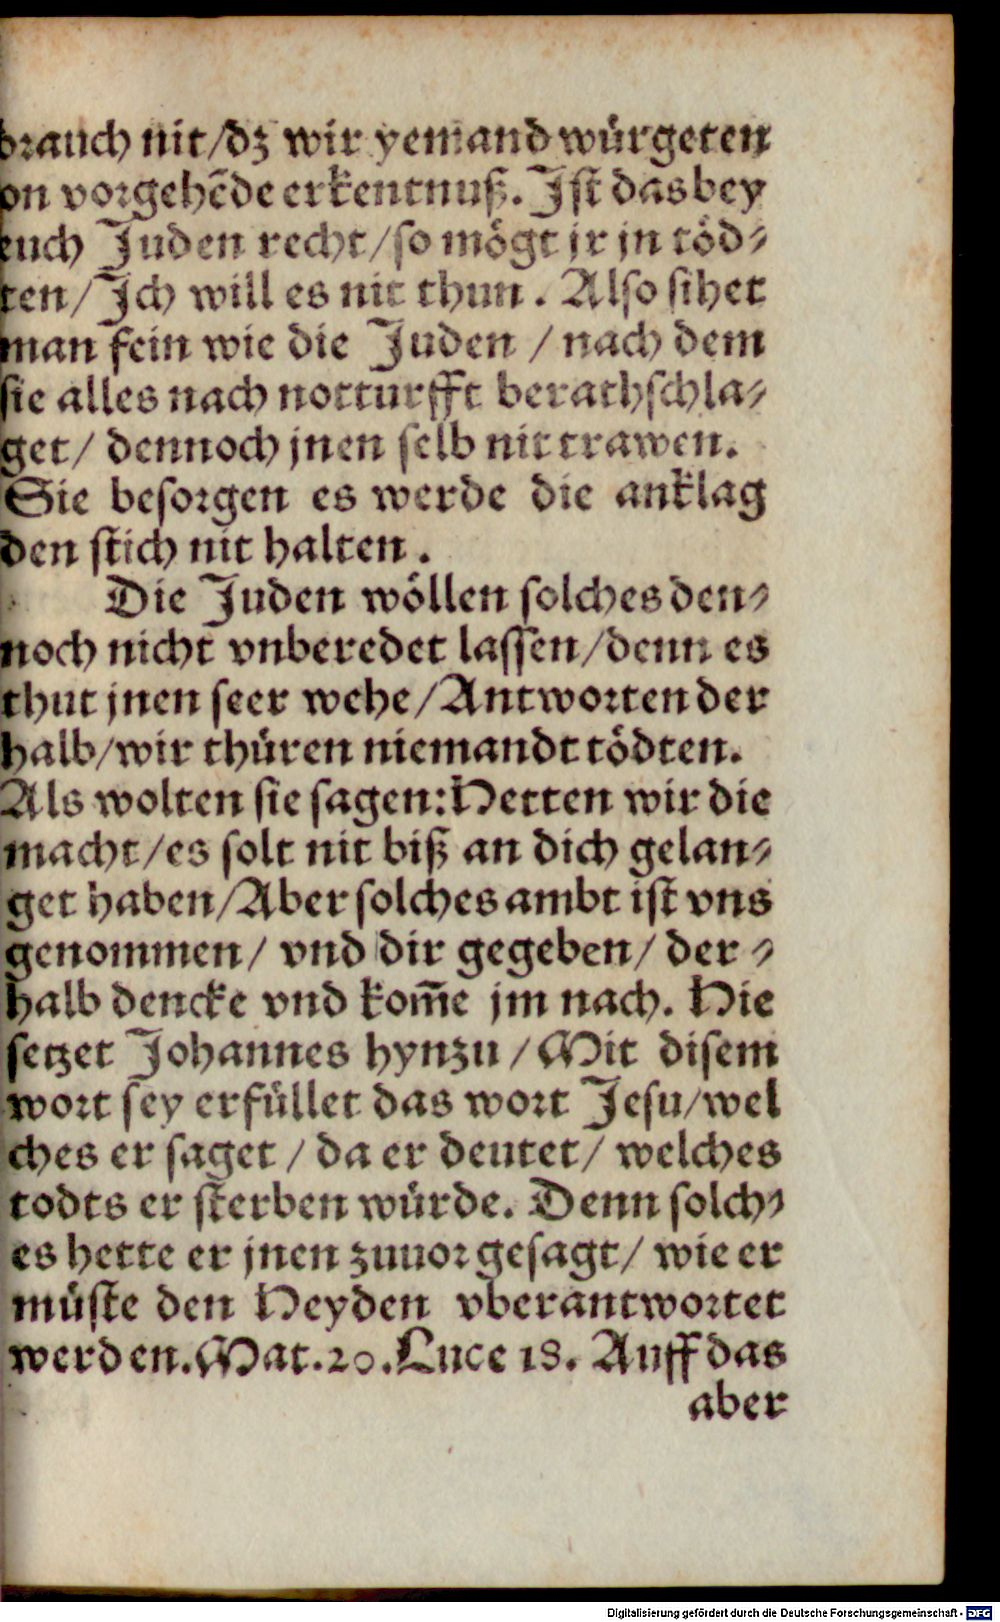 brauch nit/dz wir yemand würgeten
on vorgehēde erkentnuß. Ist das bey
euch Juden recht/so mögt jr jn töd⸗
ten/Ich will es nit thun. Also sihet
man fein wie die Juden / nach dem
sie alles nach notturfft berathschla⸗
get/ dennoch jnen selb nit trawen.
Sie besorgen es werde die anklag
den stich nit halten.
Die Juden wöllen solches den⸗
noch nicht vnberedet lassen/denn es
thut jnen seer wehe/Antworten der
halb/wir thüren niemandt tödten.
Als wolten sie sagen: Hetten wir die
macht/es solt nit biß an dich gelan⸗
get haben/Aber solches ambt ist vns
genommen/ vnd dir gegeben/ der⸗
halb dencke vnd kom̄e jm nach. Hie
setzet Johannes hynzu /Mit disem
wort sey erfüllet das wort Jesu/wel
ches er saget / da er deutet/ welches
todts er sterben würde. Denn solch⸗
es hette er jnen zuuor gesagt/ wie er
müste den Heyden vberantwortet
werden. Mat. 20. Luce 18. Auff das
aber
Digitalisierung gefördert durch die Deutsche Forschungsgemeinschaft - DFG